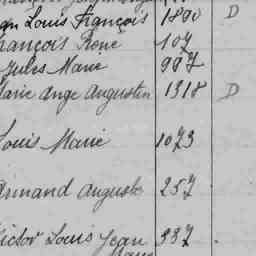 Louis François 1890 D
François René 107
Jules Marie 997
Marie Ange Augustin 1318 D
Louis Marie 1073
Armand Auguste 257
Victor Louis Jean 337